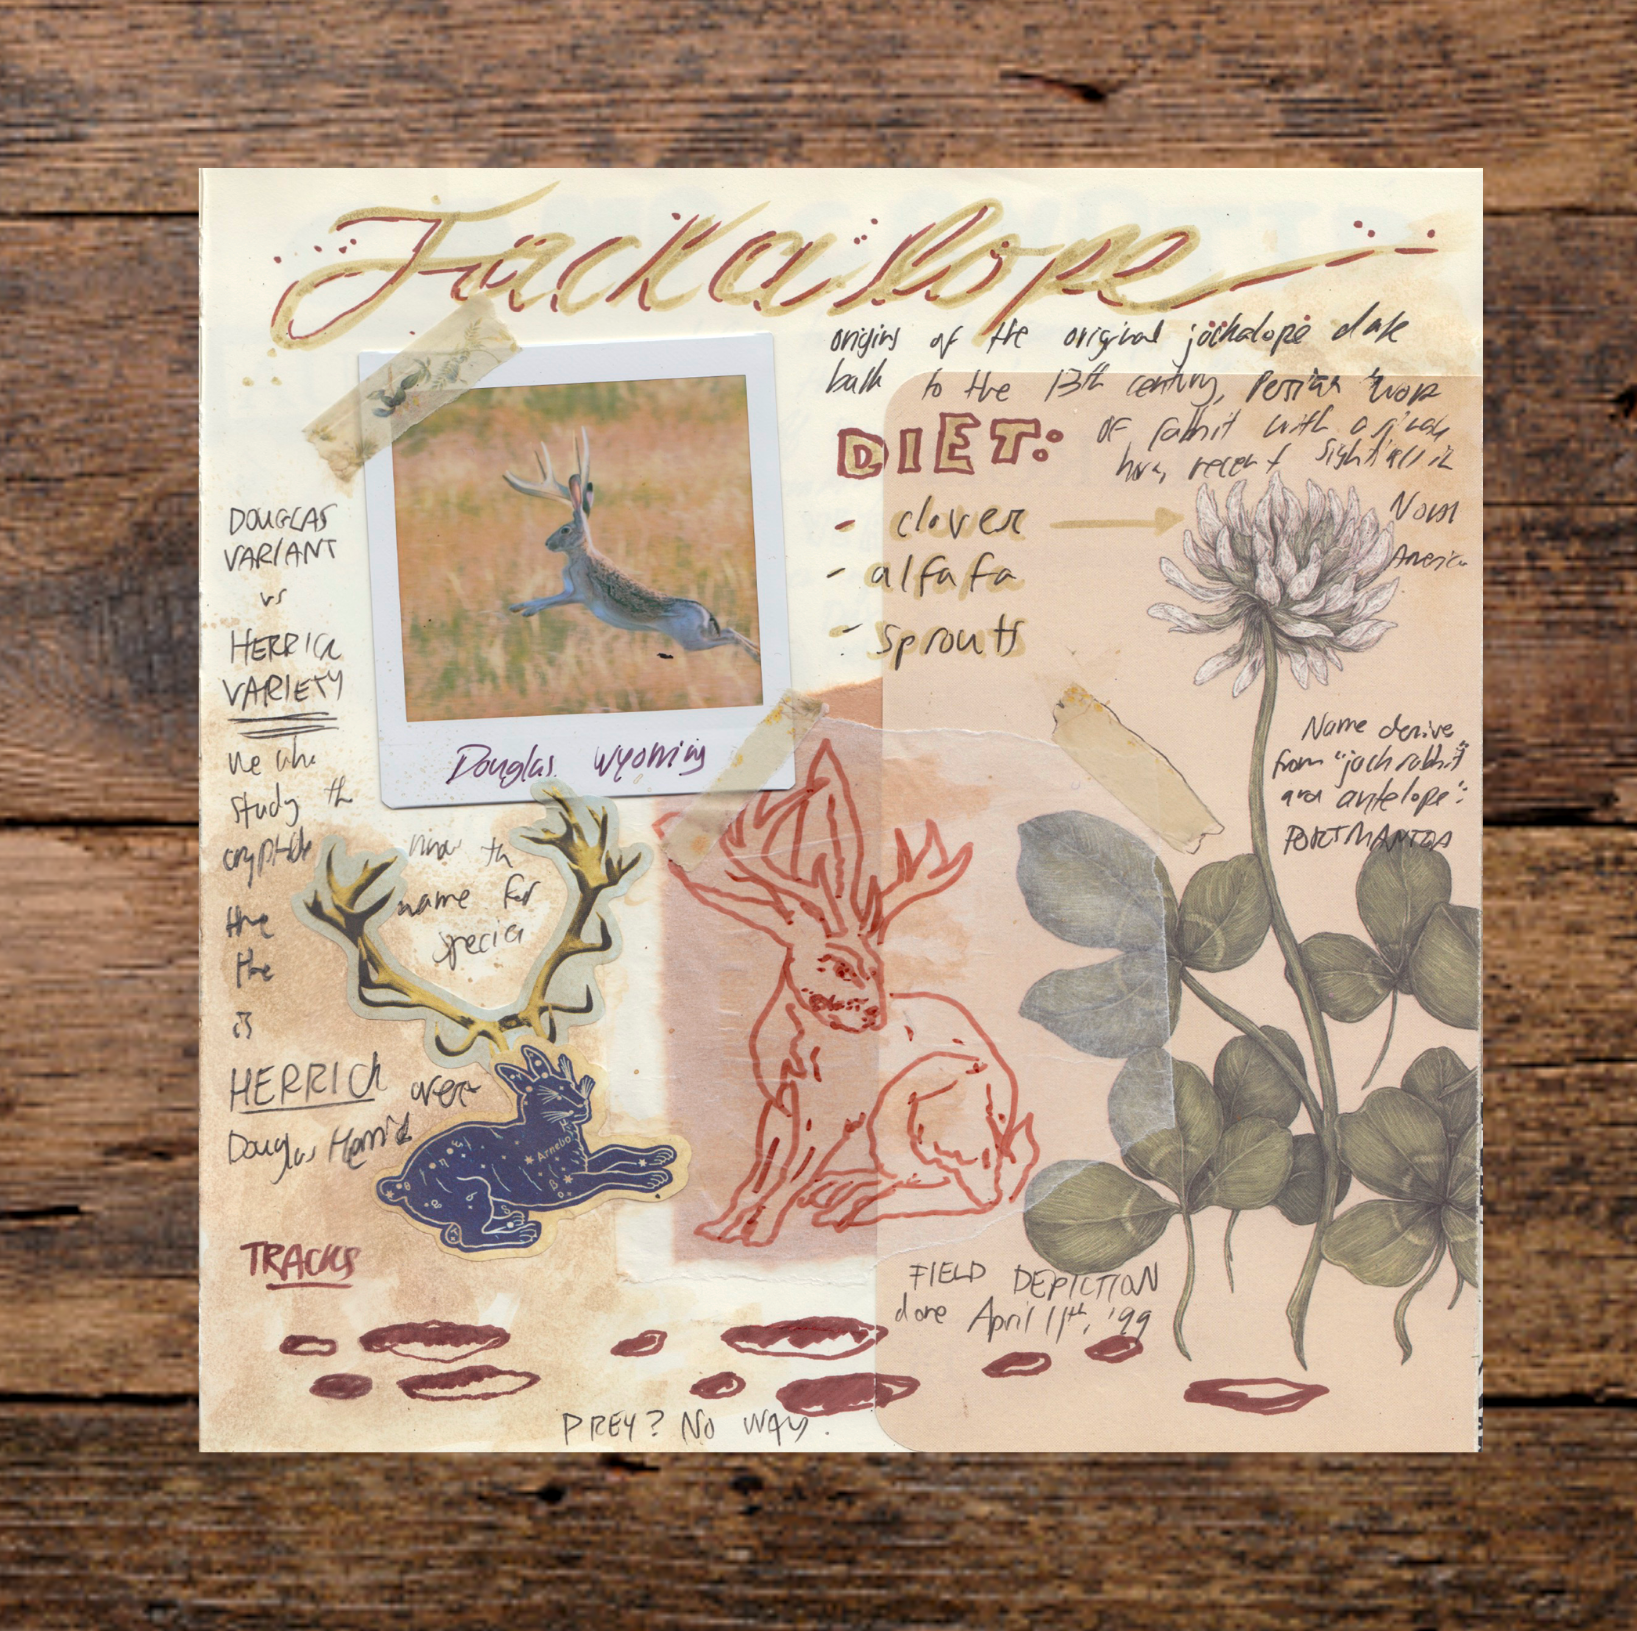 Jackalope
origins of the original jackalope date
back to the 13th century, Persian work
OF rabbit with a single
horn, recent sightings in
North
America
DIET:
- clover
- alfafa
- sprouts
DOUGLAS
VARIANT
vs
HERRICK
VARIETY
we who
study the
cryptids
the
the
is
HERRICK over
Douglas Herrick
Douglas, Wyoming
name for
species
Arnebo
Name derive
from "jack rabbit"
and "antelope":
PORTMANTOA
FIELD DEPICTION
done April 11th, '99
TRACKS
PREY? NO WAY.